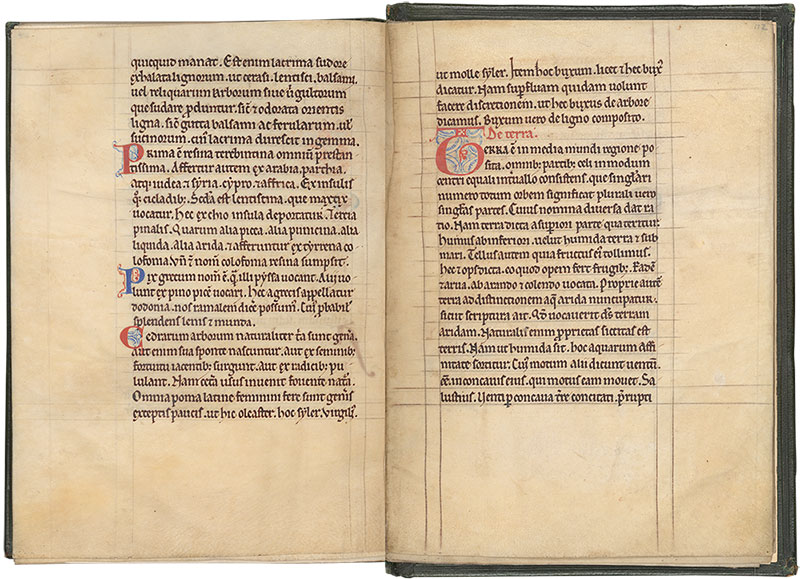 quicquid manat. Est enim lacrima sudore
exhalata lignorum. ut cerasi. lentisci. balsami.
uel reliquarum arborum siue uirgultorum
que sudare produntur. sic ⁊ odorata orientis
ligna. sic gutta balsami ac ferularum. uel
sucinorum. cui lacrima durescit in gemma.
Prima ē resina terebintina omniū prestan
tissima. Affertur autem ex arabia. parchia.
atq; iudea ⁊ syria. cypro. ⁊ affrica. Ex insulis
q; cicladib; Scda est lentiscina. que
uocatur. hec ex chio insula deportatur. Tercia
pinalis. Quarum alia picea. alia punicina. alia
liquida. alia arida. ⁊ afferuntur ex cyrena co
lofoma vn̄ ⁊ nom̄ colofoma resina sumpsit.
Pix grecum nom̄ ē. q̄ illi pyssa uocant. Alij uo
lunt ex pino picē uocari. hec a grecis appellatur
dodonia. nos ramalem dicē possum;. Cui;
splendens lenis ⁊ munda.
Cedrarum arborum naturaliter tria sunt gen̄a.
aut enim sua sponte nascuntur. aut ex seminib;
fortuitu iacentib; surgunt. aut ex radicib; pu
lulant. Nam cetera usus inuenit fouente nat̄a.
Omnia poma latine feminini fere sunt gen̄is
exceptis paucis. ut hic oleaster. hoc syler. Virgili;.
ut molle syler. Item hoc buxum. licet ⁊ hec bux;
dicatur. Nam supfluam quidam uolunt
facere discretionem. ut hec buxus de arbore
dicamus. Buxum uero de ligno composito.
De terra.
Terra ē in media mundi regione po
sita. omnib; partib; celi in modum
centri equali intuallo consistens. que singulari
numero totum orbem significat. plurali uero
singulas partes. Cuius nomina diuersa dat ra
tio. Nam terra dicta a superiori parte qua teritur.
humus ab inferiori. uelut humida terra ⁊ sub
mari. Tellus autem quia fructus ei; tollimus.
hec ⁊ ops dicta. eo quod opem fert frugib;. Eadē
⁊ aria. ab arando ⁊ colendo uocata. Proprie autē
terra ad distinctionem aq̄ arida nuncupatur.
sicut scriptura ait. Qd̄ uocauerit d̄s terram
aridam. Naturalis enim proprietas siccitas est
terris. Nam ut humida sit. hoc aquarum affi
nitate sortitur. Cui; motum alii dicunt uentū.
eē. in concauis eius. qui motus eam mouet. Sa
lustius. Uenti p concaua terre concitati. prerupti